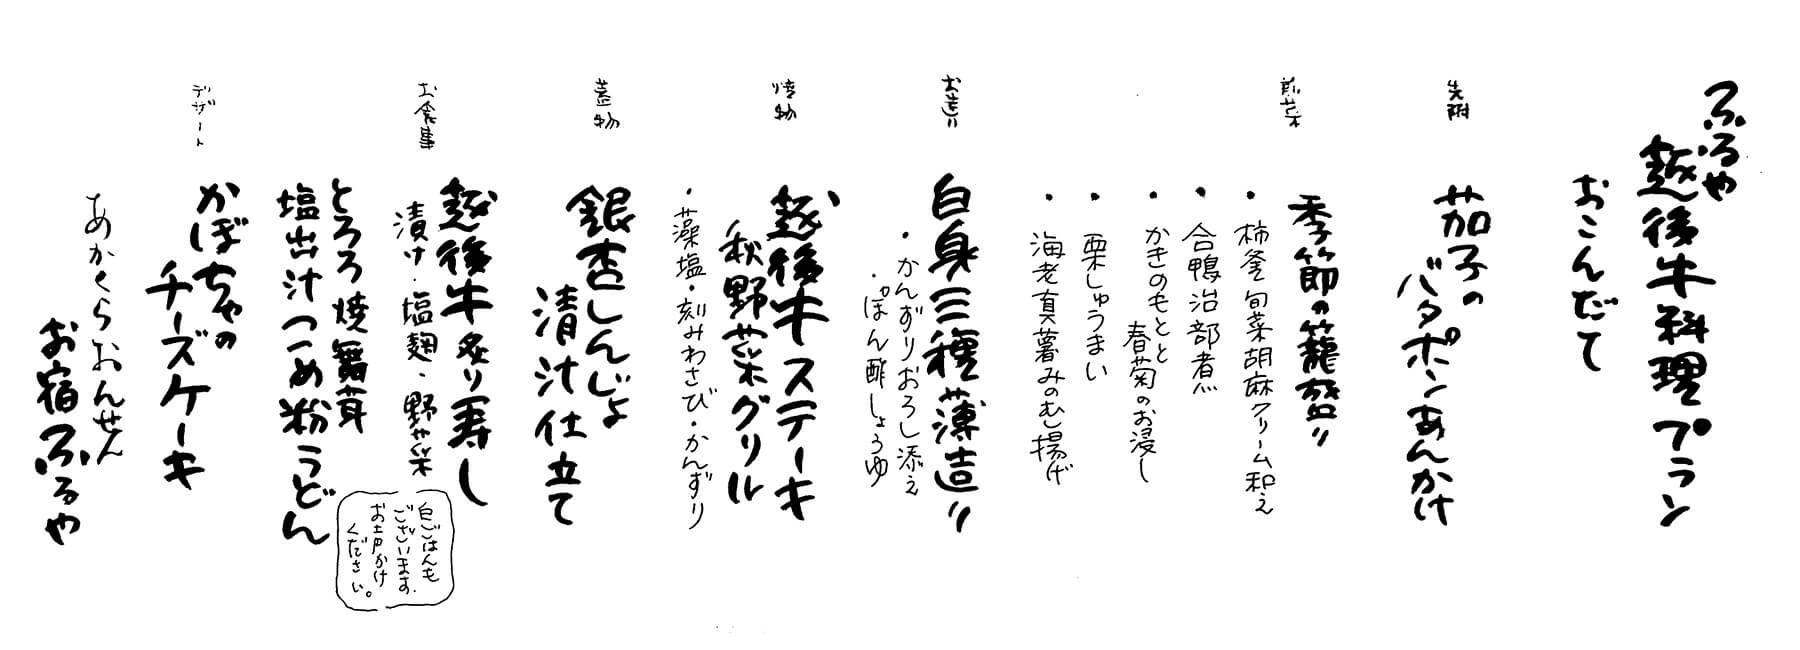 ふるや
越後牛料理プラン
おこんだて
先附
茄子の
バタポンあんかけ
前菜
季節の籠盛り
・柿釜 旬菜胡麻クリーム和え
・合鴨治部煮
・かきのもとと
春菊のお浸し
・栗しゅうまい
・海老真薯みのむし揚げ
お造り
白身三種薄造り
・かんずりおろし添え
・ぽん酢しょうゆ
焼物
越後牛ステーキ
秋野菜グリル
・藻塩・刻みわさび・かんずり
蓋物
銀杏しんじょ
清汁仕立て
お食事
越後牛炙り寿し
漬け・塩麹・野菜
とろろ 焼舞茸
塩出汁つめ粉うどん
白ごはんも
ございます。
お声かけ
ください。
デザート
かぼちゃの
チーズケーキ
あかくらおんせん
お宿ふるや